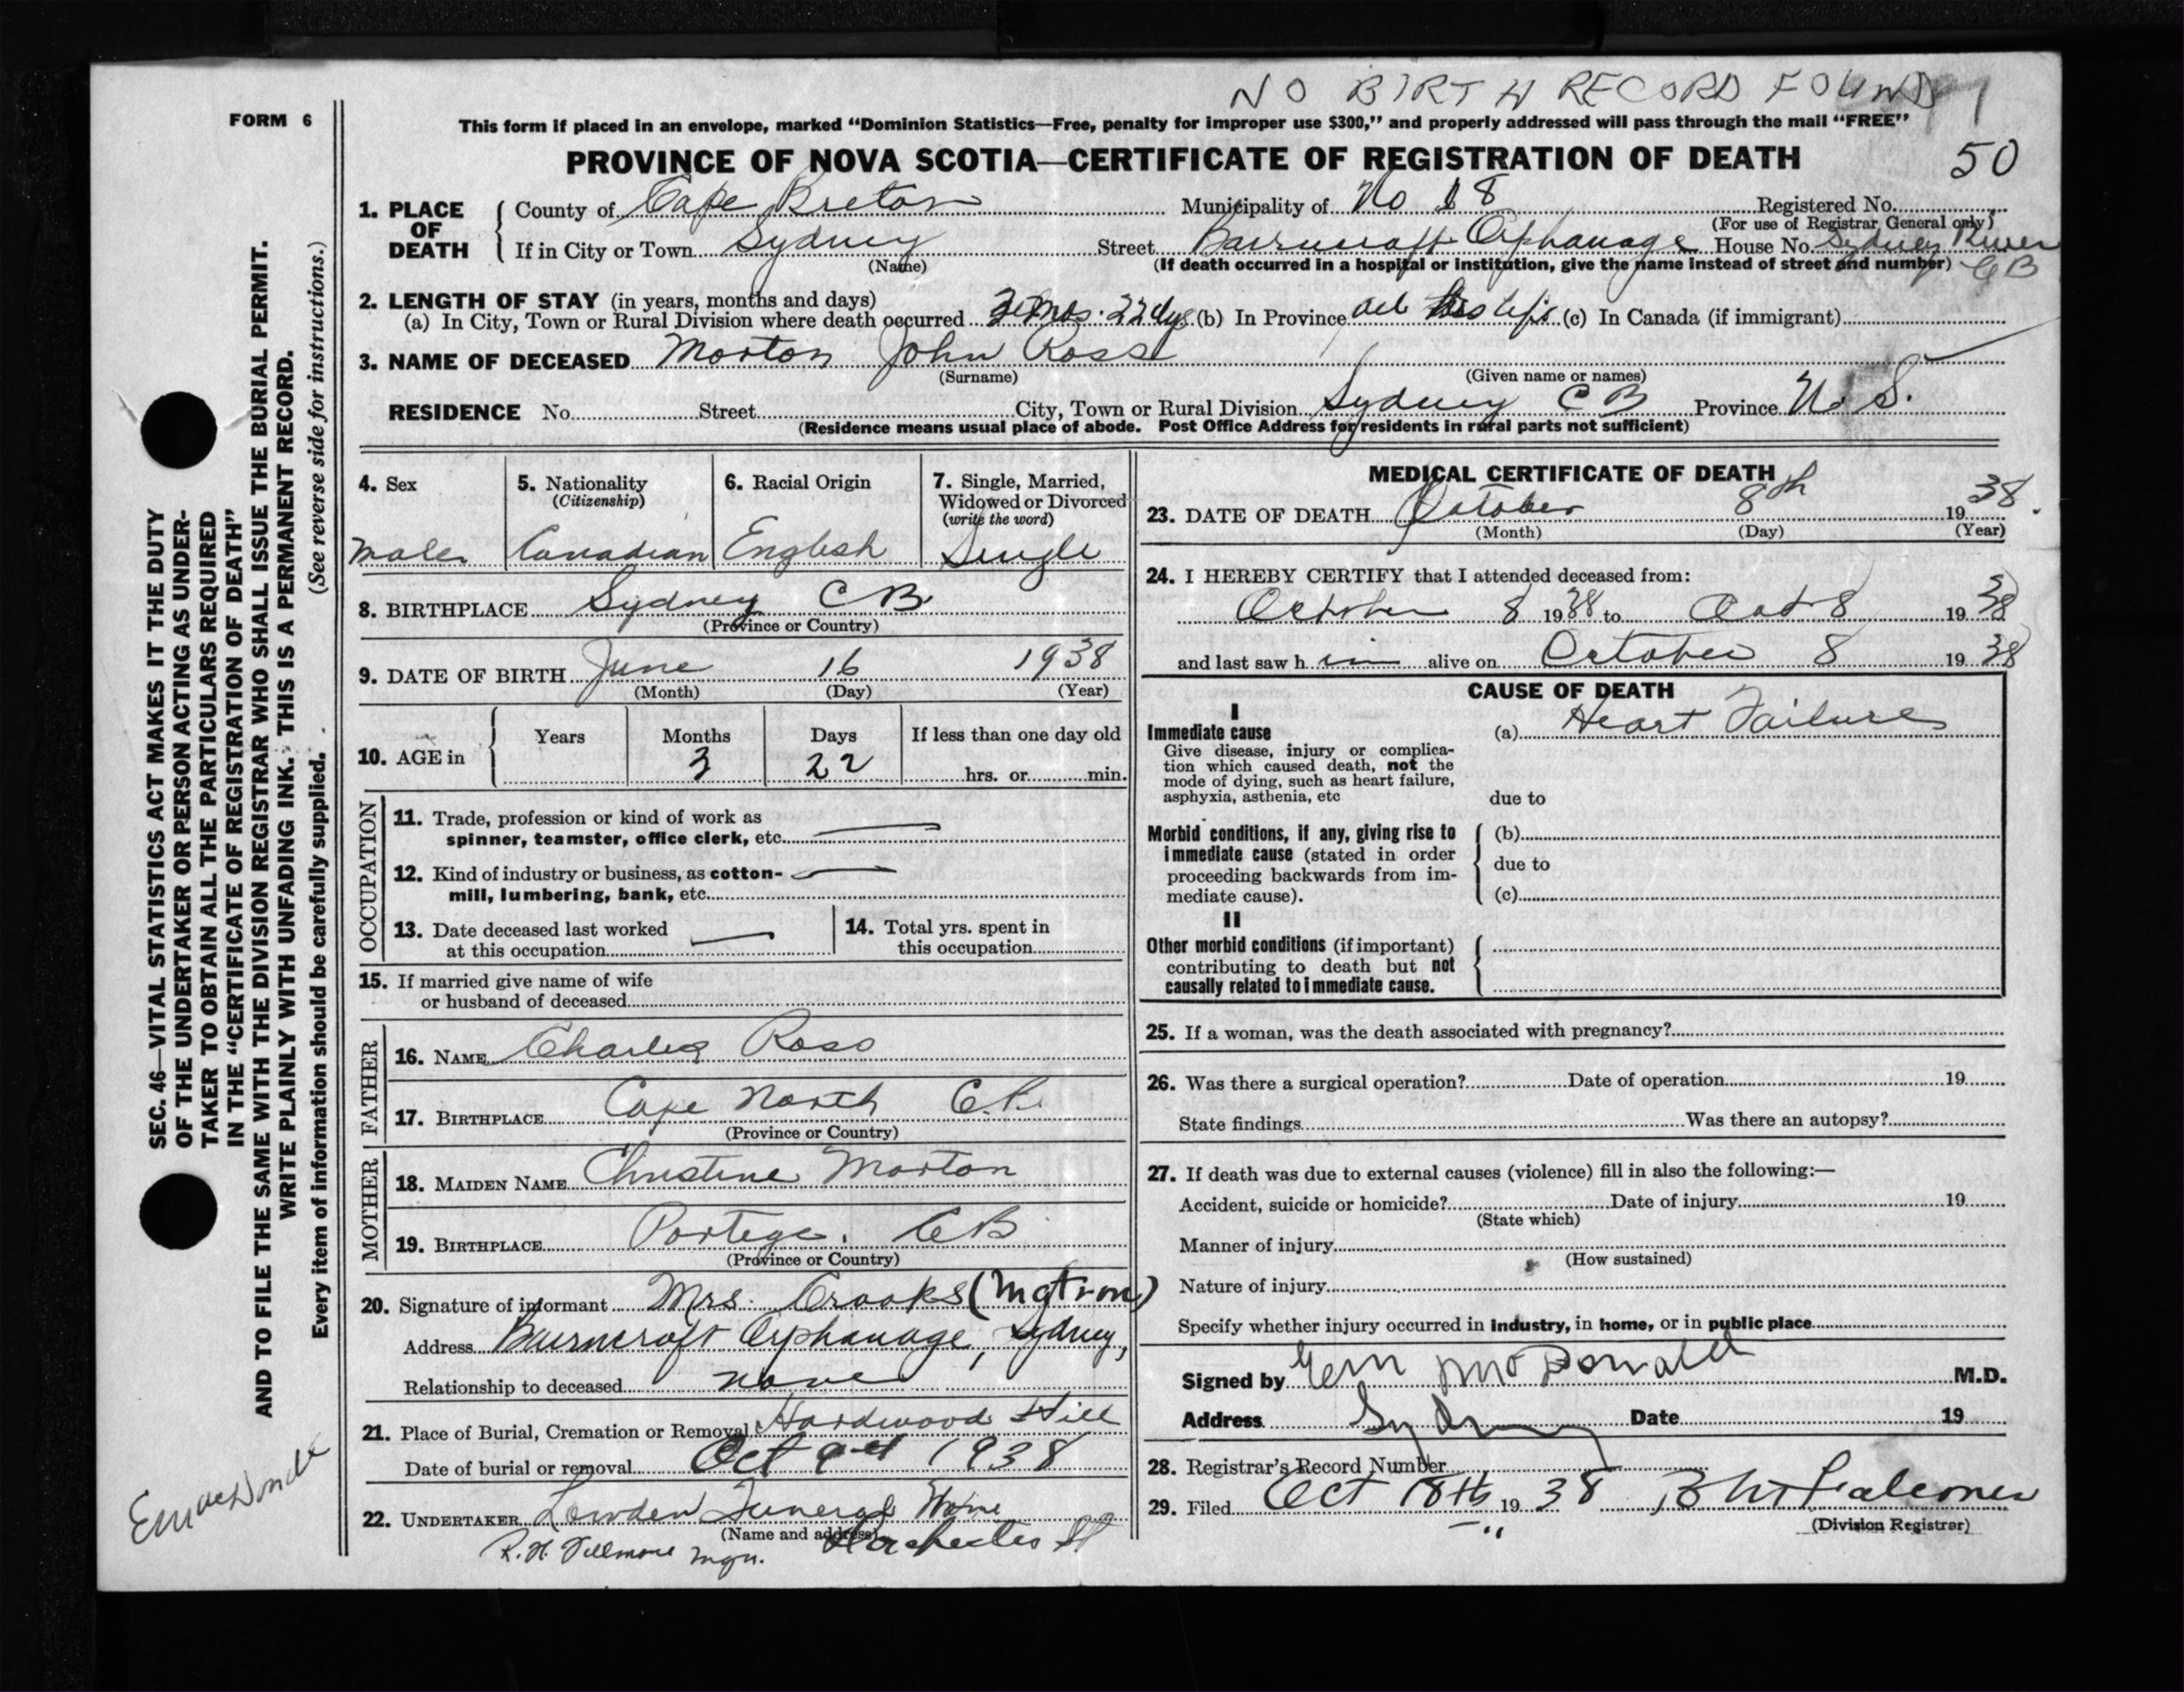 NO BIRTH RECORD FOUND
FORM 6
This form if placed in an envelope, marked “Dominion Statistics—Free, penalty for improper use $300,” and properly addressed will pass through the mail “FREE”
PROVINCE OF NOVA SCOTIA—CERTIFICATE OF REGISTRATION OF DEATH 50
1. PLACE OF DEATH
County of Cape Breton Municipality of No 18 Registered No.
(For use of Registrar General only)
If in City or Town Sydney Street Bairncroft Orphanage House No. Sydney River CB
(Name) (If death occurred in a hospital or institution, give the name instead of street and number)
2. LENGTH OF STAY (in years, months and days)
(a) In City, Town or Rural Division where death occurred 3 mos. 22 dys (b) In Province all his life (c) In Canada (if immigrant)
3. NAME OF DECEASED Morton John Ross
(Surname) (Given name or names)
RESIDENCE No. Street City, Town or Rural Division Sydney C B Province N. S.
(Residence means usual place of abode. Post Office Address for residents in rural parts not sufficient)
4. Sex
male
5. Nationality
(Citizenship)
Canadian
6. Racial Origin
English
7. Single, Married,
Widowed or Divorced
(write the word)
Single
8. BIRTHPLACE Sydney CB
(Province or Country)
9. DATE OF BIRTH June 16 1938
(Month) (Day) (Year)
10. AGE in
Years Months Days If less than one day old
3 22 hrs. or min.
OCCUPATION
11. Trade, profession or kind of work as
spinner, teamster, office clerk, etc.
12. Kind of industry or business, as cotton-
mill, lumbering, bank, etc.
13. Date deceased last worked
at this occupation
14. Total yrs. spent in
this occupation
15. If married give name of wife
or husband of deceased
FATHER
16. NAME Charles Ross
17. BIRTHPLACE Cape North C.B.
(Province or Country)
MOTHER
18. MAIDEN NAME Christine Morton
19. BIRTHPLACE Portege. CB
(Province or Country)
20. Signature of informant Mrs. Crooks (Matron)
Address Bairncroft Orphanage, Sydney,
Relationship to deceased none
21. Place of Burial, Cremation or Removal Hardwood Hill
Date of burial or removal Oct 1938
22. UNDERTAKER Lowden Funeral Home
(Name and address) Dorchester St
R. H. Fillmore mgr.
MEDICAL CERTIFICATE OF DEATH
23. DATE OF DEATH October 8th 1938.
(Month) (Day) (Year)
24. I HEREBY CERTIFY that I attended deceased from:
October 8 1938 to Oct 8 1938
and last saw him alive on October 8 1938
CAUSE OF DEATH
I
Immediate cause
Give disease, injury or complica-
tion which caused death, not the
mode of dying, such as heart failure,
asphyxia, asthenia, etc
(a) Heart Failure
due to
Morbid conditions, if any, giving rise to
immediate cause (stated in order
proceeding backwards from im-
mediate cause).
(b)
due to
(c)
II
Other morbid conditions (if important)
contributing to death but not
causally related to immediate cause.
25. If a woman, was the death associated with pregnancy?
26. Was there a surgical operation? Date of operation 19
State findings Was there an autopsy?
27. If death was due to external causes (violence) fill in also the following:—
Accident, suicide or homicide? Date of injury 19
(State which)
Manner of injury
(How sustained)
Nature of injury
Specify whether injury occurred in industry, in home, or in public place
Signed by McDonald M.D.
Address Sydney Date 19
28. Registrar's Record Number
29. Filed Oct 18th 1938 Falconer
(Division Registrar)
SEC. 46—VITAL STATISTICS ACT MAKES IT THE DUTY
OF THE UNDERTAKER OR PERSON ACTING AS UNDER-
TAKER TO OBTAIN ALL THE PARTICULARS REQUIRED
IN THE “CERTIFICATE OF REGISTRATION OF DEATH”
AND TO FILE THE SAME WITH THE DIVISION REGISTRAR WHO SHALL ISSUE THE BURIAL PERMIT.
WRITE PLAINLY WITH UNFADING INK. THIS IS A PERMANENT RECORD.
Every item of information should be carefully supplied. (See reverse side for instructions.)